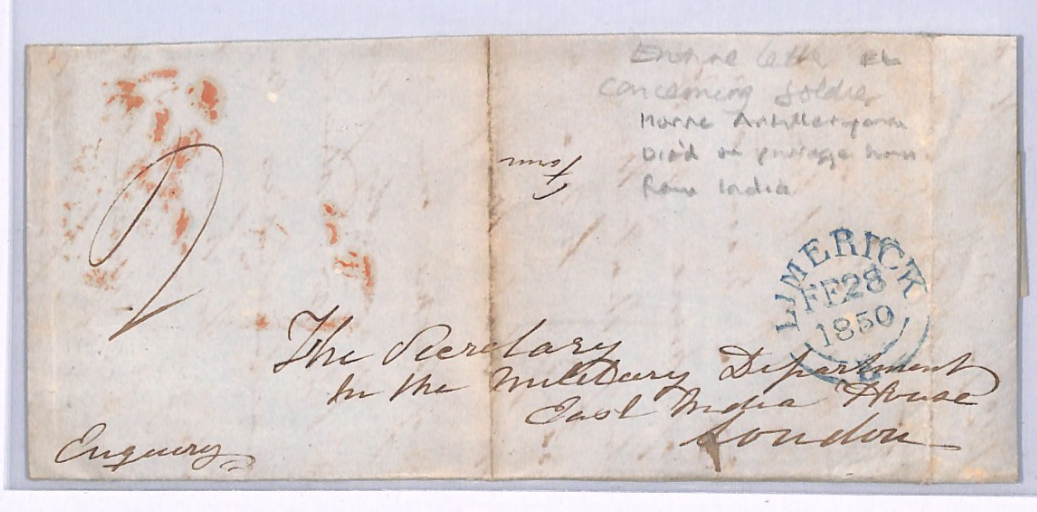 Entire letter
concerning soldier
Horse Artilleryman
Died on passage home
from India
Form
LIMERICK
FE 28
1850
The Secretary
In the Military Department
East India House
London
Enquiry